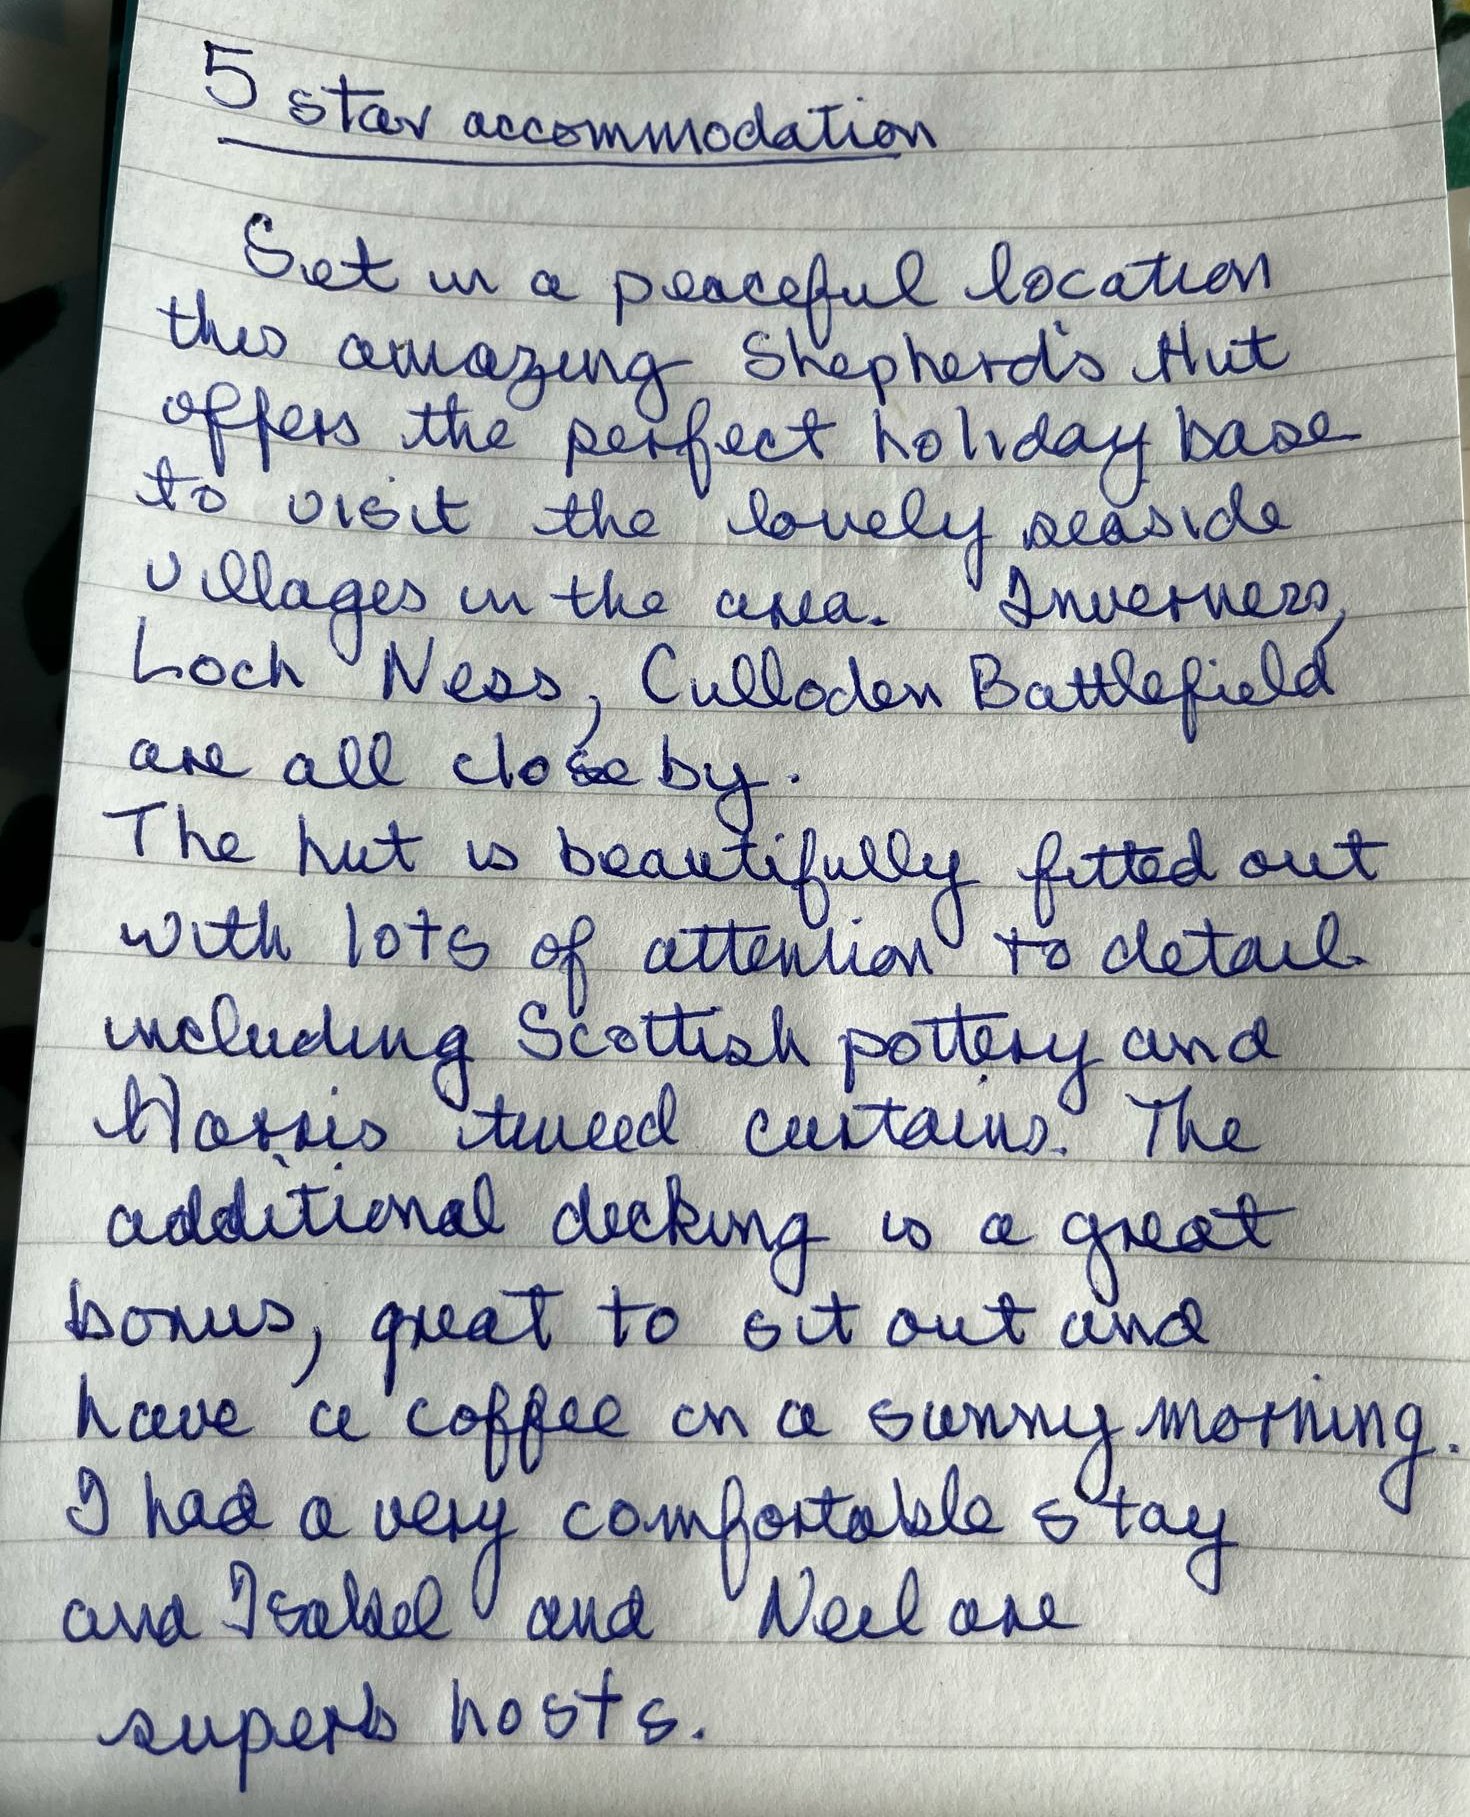 5 star accommodation
Set in a peaceful location
this amazing Shepherd's Hut
offers the perfect holiday base
to visit the lovely seaside
villages in the area. Inverness,
Loch Ness, Culloden Battlefield
are all close by.
The hut is beautifully fitted out
with lots of attention to detail
including Scottish pottery and
Harris tweed curtains. The
additional decking is a great
bonus, great to sit out and
have a coffee on a sunny morning.
I had a very comfortable stay
and Isabel and Neil are
superb hosts.